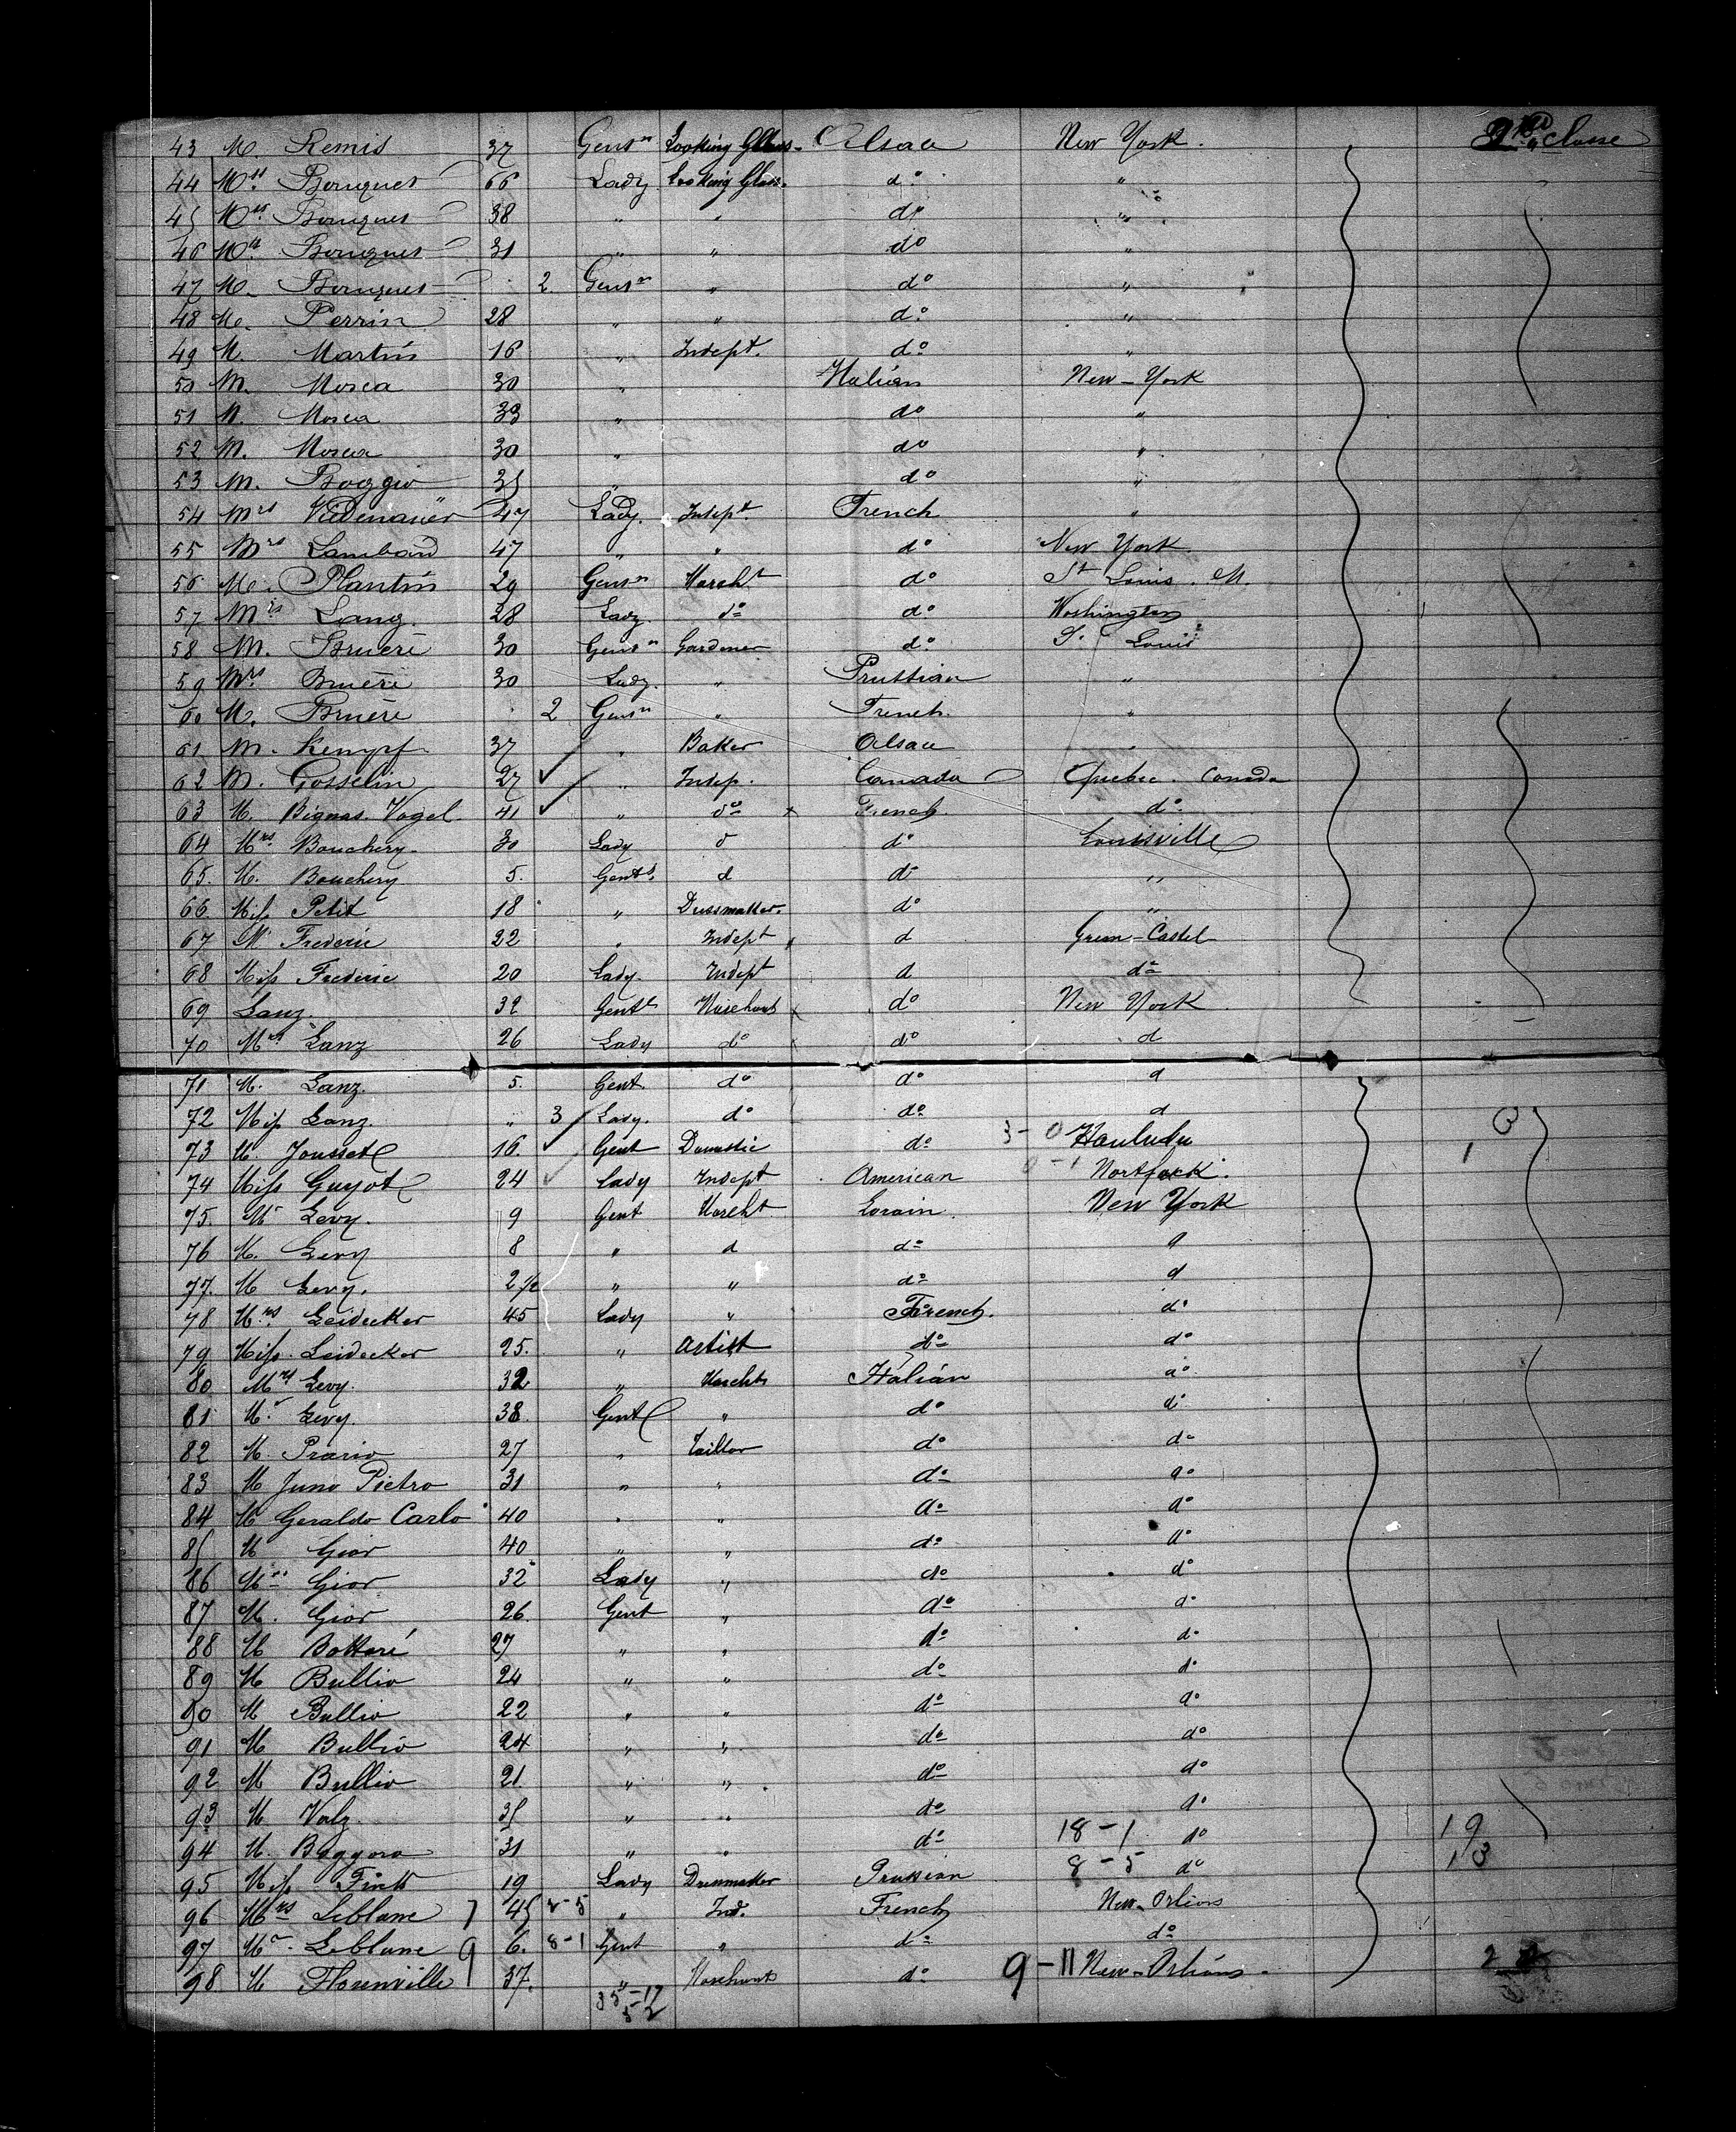 2nd Classe
43 M. Remis 37 Gent.n Looking Glass Alsace New York.
44 Mrs Bouquet 66 Lady Looking Glass. do "
45 Mrs Bouquet 38 " " do "
46 Mrs Bouquet 31 " " do "
47 M. Bouquet 2 Gent.n " do "
48 M. Perrin 28 " " do "
49 M. Martin 16 " Indept. do "
50 M. Mosca 30 " Italian New-York
51 M. Mosca 33 " do "
52 M. Mosca 30 " do "
53 M. Boggio 35 " do "
54 Mrs 47 Lady. Indept. French "
55 Mrs Lambard 47 " " do New York
56 M. Plantin 29 Gent.n Marcht do St Louis. M.
57 Mrs Lang. 28 Lady do do Washington
58 M. Bruere 30 Gent.n Gardener do S. Louis
59 Mrs Bruere 30 Lady. " Prussian "
60 M. Bruere 2 Gent.n " French. "
61 M. Kempf 37 " Baker Alsace "
62 M. Gosselin 27 " Indep. Canada Quebec. Canada
63 M. Vogel 41 " do x French. do
64 Mrs Bouchery. 30 Lady d do Louisville
65. M. Bouchery 5. Gentl. d do "
66. Miss Petit 18 " Dressmaker. do "
67. M Frederic 22 " Indept x d Green-Castel
68 Miss Frederic 20 Lady. Indept d do
69 Lanz. 32 Gentl Marchant x do New York
70 Mrs Lanz 26 Lady do do d
71 M. Lanz. 5. Gent. do do d
72 Miss Lanz. " 3 Lady. do do d 3
73 M Jousset 16. Gent Domestic do 3-0 Honlulu 1
74 Miss Guyot 24 Lady Indept American 0-1 Nortfork.
75. Mr Levy. 9 Gent Marcht Lorain. New York
76 M. Levy 8 " d do d
77. M Levy. 2 1/2 " " do d
78 Mrs Leidecker 45 Lady " French. do
79 Miss Leidecker 25. " Artist do do
80 Mrs Levy. 32 " Marcht Italian do
81 Mr Levy. 38. Gentl " do do
82 M Prario 27 " Taillor do do
83 M Juno Pietro 31 " " do do
84 M Geraldo Carlo 40 " " do do
85 M Gior 40 " " do do
86 Mrs Gior 32 Lady " do do
87 M. Gior 26 Gent " do do
88 M Bottari 27 " " do do
89 M Bullio 24 " " do do
90 M Bullio 22 " " do do
91 M Bullio 24 " " do do
92 M Bullio 21 " " do do
93 M Valz. 35 " " do do
94 M. Baggora 31 " " do 18-1 do 19
95 Miss Fink 19 Lady Dressmaker Prussian 8-5 do 13
96 Mrs Leblanc 7 45 2-5 " Ind. French New-Orleans
97 Mr Leblanc 9 6. 8-1 Gent " do do
98 M Florenville 37. " Marchant do 9-11 New-Orleans. 2
35-17
52